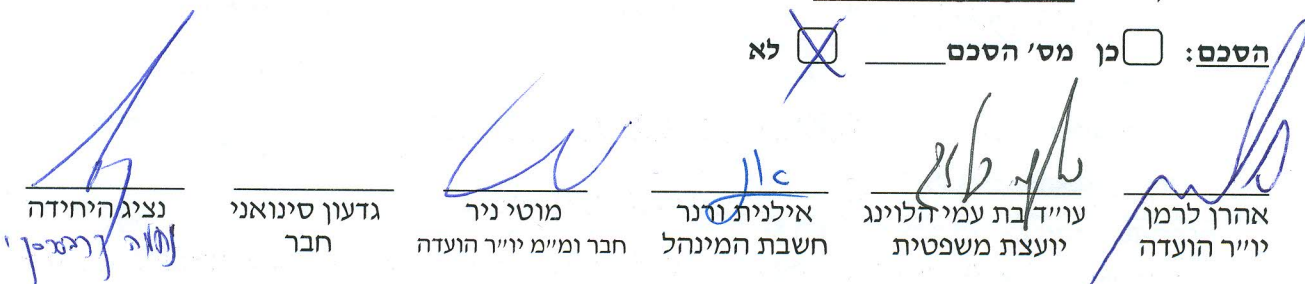 הסכם: כן מס' הסכם_____ לא
אהרן לרמן
יו"ר הועדה
עו"ד בת עמי הלוינג
יועצת משפטית
אילנית ורנר
חשבת המינהל
מוטי ניר
חבר ומ"מ יו"ר הועדה
גדעון סינואני
חבר
נציג היחידה